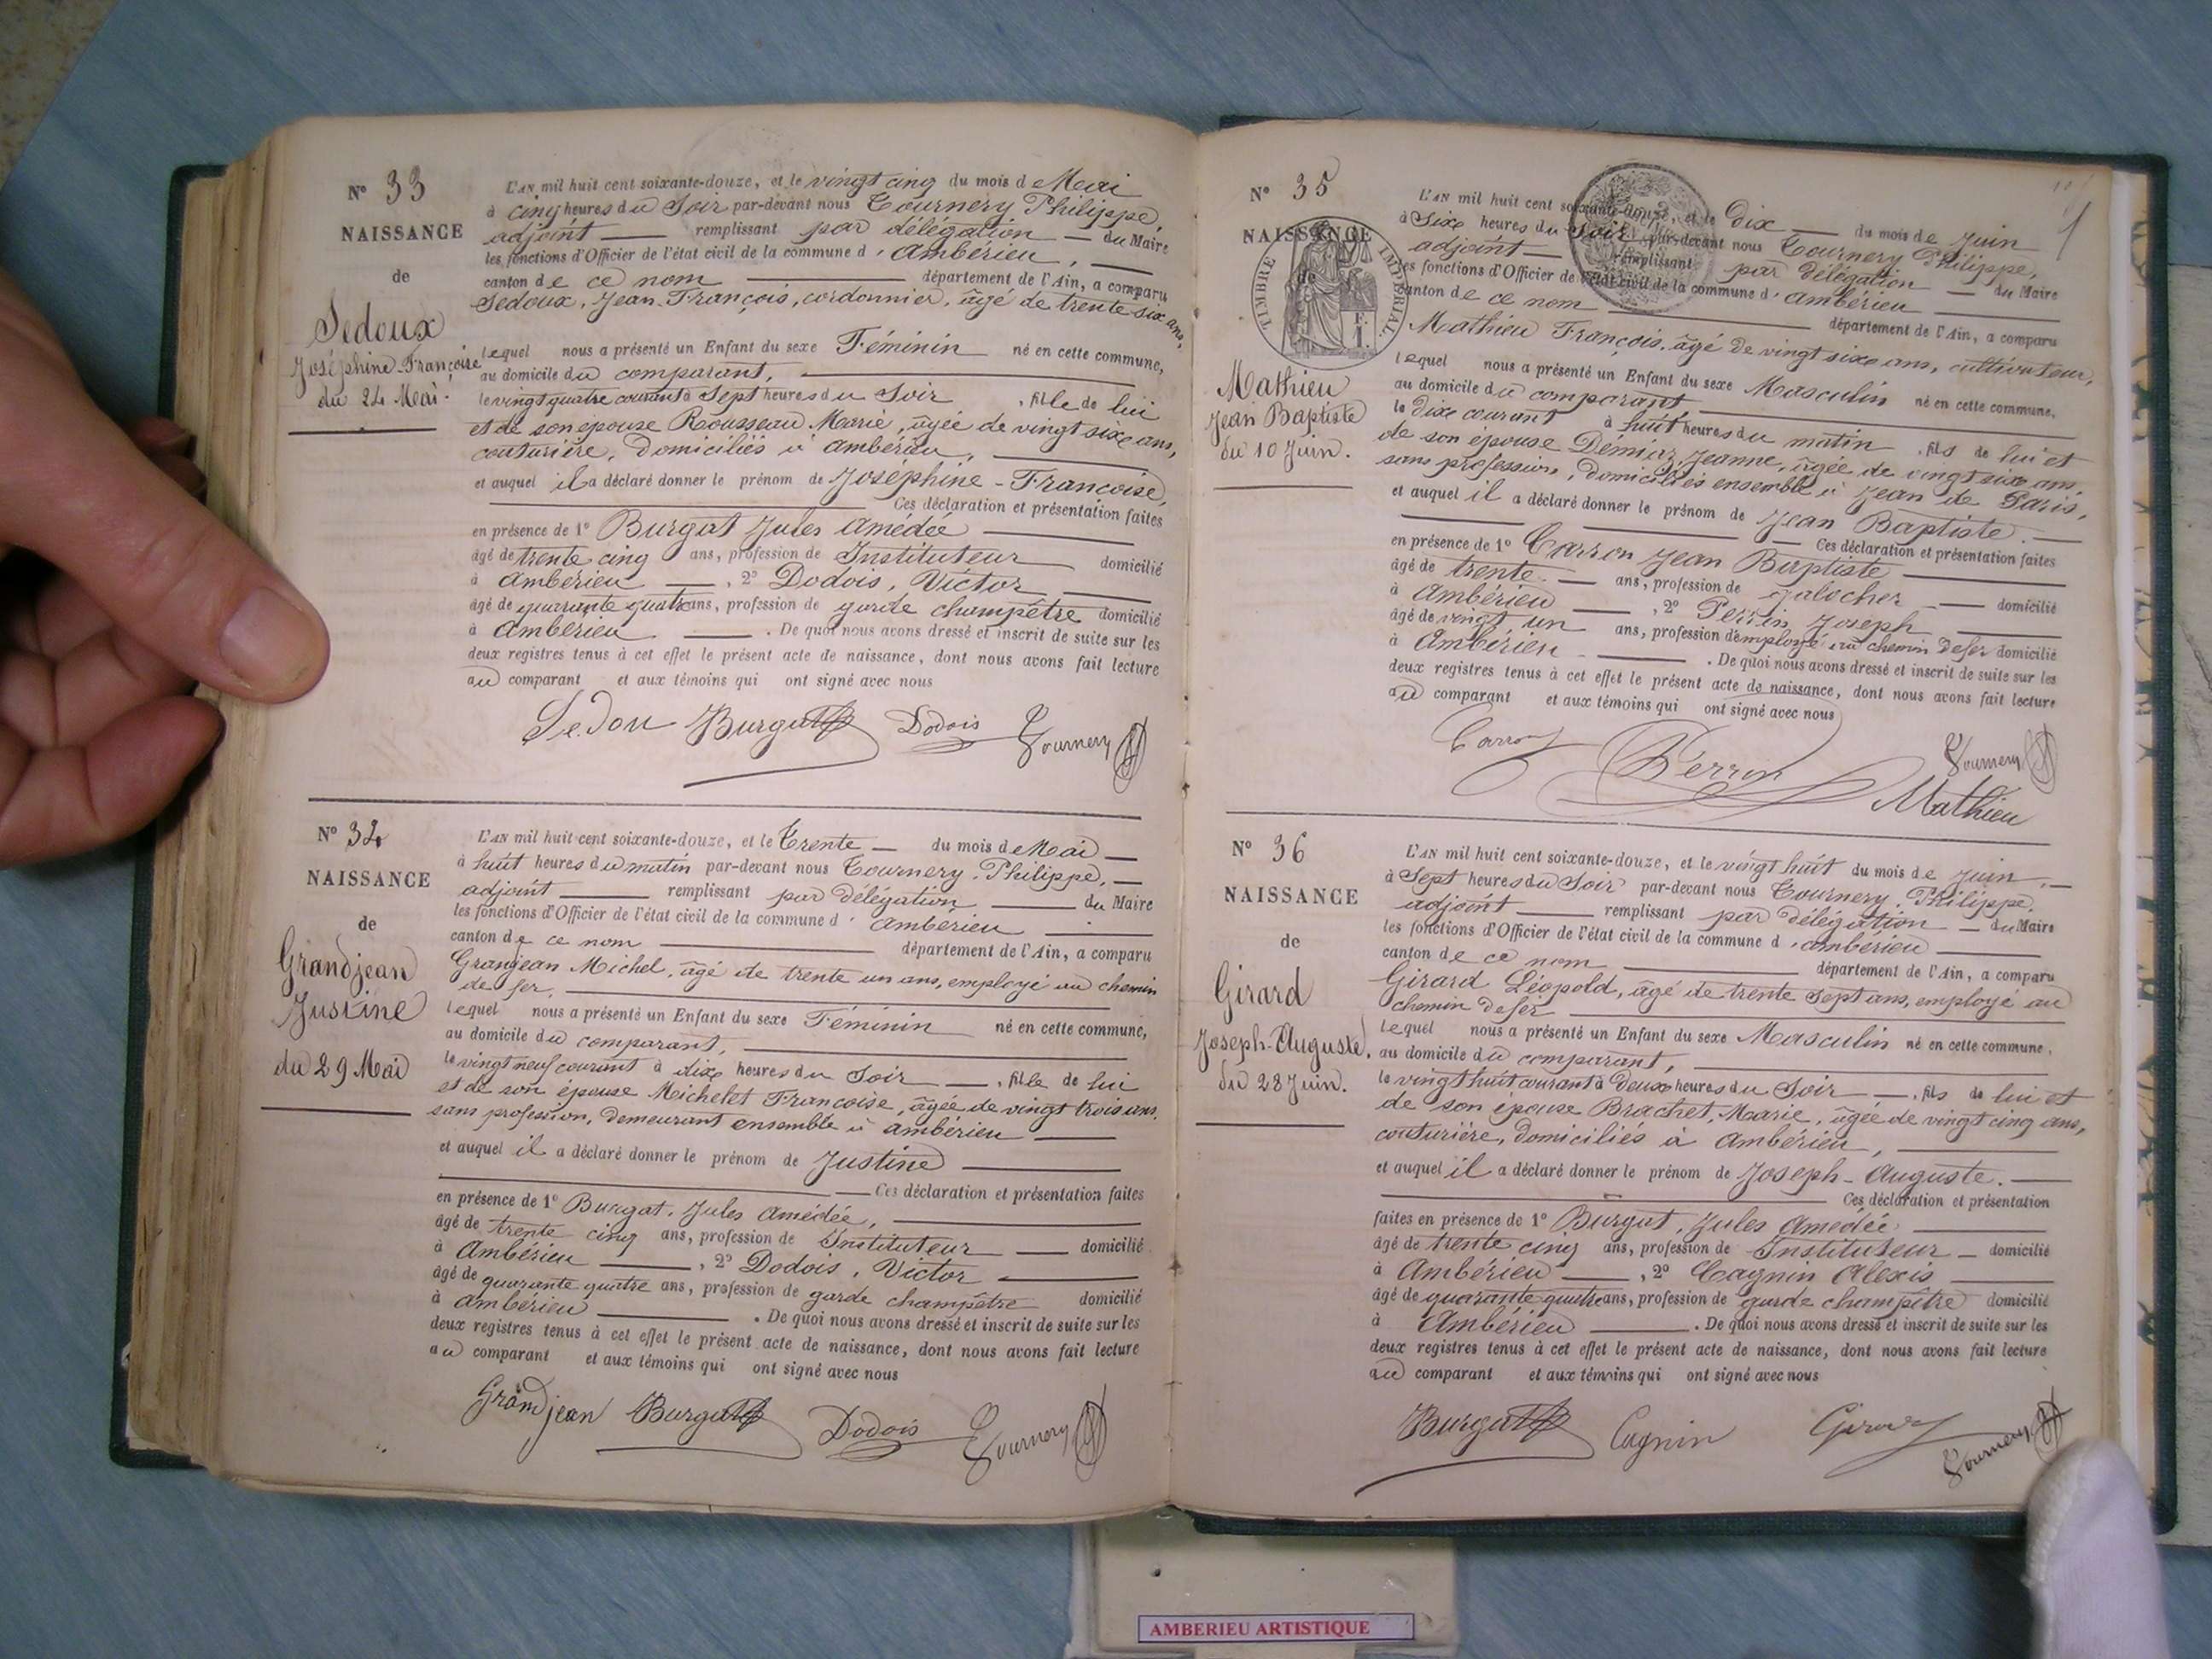 N° 33
NAISSANCE
de
Sedoux
Joséphine-Françoise
du 24 Mai.
L'AN mil huit cent soixante-douze, et le vingt cinq du mois de Mai
à cinq heures du Soir par-devant nous Tournery Philippe,
adjoint remplissant par délégation du Maire
les fonctions d'Officier de l'état civil de la commune d'Ambérieu,
canton de ce nom département de l'Ain, a comparu
Sedoux, Jean-François, cordonnier, âgé de trente six ans,
lequel nous a présenté un Enfant du sexe Féminin né en cette commune,
au domicile du comparant,
le vingt quatre courant à Sept heures du Soir, fille de lui
et de son épouse Rousseau Marie, âgée de vingt six ans,
couturière, domiciliés à Ambérieu,
et auquel il a déclaré donner le prénom de Joséphine-Françoise,
Ces déclaration et présentation faites
en présence de 1° Burgat Jules Amédée
âgé de trente cinq ans, profession de Instituteur domicilié
à Ambérieu, 2° Dodois, Victor
âgé de quarante quatre ans, profession de garde champêtre domicilié
à Ambérieu. De quoi nous avons dressé et inscrit de suite sur les
deux registres tenus à cet effet le présent acte de naissance, dont nous avons fait lecture
au comparant et aux témoins qui ont signé avec nous
Sedou Burgat Dodois Tournery
N° 34
NAISSANCE
de
Grandjean
Justine
du 29 Mai
L'AN mil huit cent soixante-douze, et le Trente du mois de Mai
à huit heures du matin par-devant nous Tournery, Philippe,
adjoint remplissant par délégation du Maire
les fonctions d'Officier de l'état civil de la commune d'Ambérieu
canton de ce nom département de l'Ain, a comparu
Granjean Michel, âgé de trente un ans, employé au chemin
de fer,
lequel nous a présenté un Enfant du sexe Féminin né en cette commune,
au domicile du comparant,
le vingt neuf courant à dix heures du Soir, fille de lui
et de son épouse Michelet Françoise, âgée de vingt trois ans,
sans profession, demeurant ensemble à Ambérieu
et auquel il a déclaré donner le prénom de Justine
Ces déclaration et présentation faites
en présence de 1° Burgat, Jules Amédée,
âgé de trente cinq ans, profession de Instituteur domicilié
à Ambérieu, 2° Dodois, Victor
âgé de quarante quatre ans, profession de garde champêtre domicilié
à Ambérieu. De quoi nous avons dressé et inscrit de suite sur les
deux registres tenus à cet effet le présent acte de naissance, dont nous avons fait lecture
au comparant et aux témoins qui ont signé avec nous
Grandjean Burgat Dodois Tournery
N° 35
NAISSANCE
de
TIMBRE IMPÉRIAL
Mathieu
Jean Baptiste
du 10 Juin.
L'AN mil huit cent soixante-douze, et le dix du mois de Juin
à Six heures du Soir par-devant nous Tournery Philippe,
adjoint remplissant par délégation du Maire
les fonctions d'Officier de l'état civil de la commune d'Ambérieu
canton de ce nom département de l'Ain, a comparu
Mathieu François, âgé de vingt six ans, cultivateur,
lequel nous a présenté un Enfant du sexe Masculin né en cette commune,
au domicile du comparant
le dix courant à huit heures du matin, fils de lui et
de son épouse Jeanne, âgée de vingt six ans,
sans profession, domiciliés ensemble à Jean de Paris,
et auquel il a déclaré donner le prénom de Jean Baptiste.
Ces déclaration et présentation faites
en présence de 1° Carron Jean Baptiste
âgé de trente ans, profession de domicilié
à Ambérieu, 2° Perrin Joseph
âgé de vingt un ans, profession d'employé au chemin de fer domicilié
à Ambérieu. De quoi nous avons dressé et inscrit de suite sur les
deux registres tenus à cet effet le présent acte de naissance, dont nous avons fait lecture
au comparant et aux témoins qui ont signé avec nous
Carron Perrin Tournery
Mathieu
N° 36
NAISSANCE
de
Girard
Joseph-Auguste,
du 28 Juin.
L'AN mil huit cent soixante-douze, et le vingt huit du mois de Juin,
à Sept heures du Soir par-devant nous Tournery, Philippe,
adjoint remplissant par délégation du Maire
les fonctions d'Officier de l'état civil de la commune d'Ambérieu
canton de ce nom département de l'Ain, a comparu
Girard Léopold, âgé de trente sept ans, employé au
chemin de fer
lequel nous a présenté un Enfant du sexe Masculin né en cette commune,
au domicile du comparant,
le vingt huit courant à Deux heures du Soir, fils de lui et
de son épouse Brachet, Marie, âgée de vingt cinq ans,
couturière, domiciliés à Ambérieu,
et auquel il a déclaré donner le prénom de Joseph-Auguste.
Ces déclaration et présentation
faites en présence de 1° Burgat, Jules Amédée
âgé de trente cinq ans, profession de Instituteur domicilié
à Ambérieu, 2° Cagnin Alexis
âgé de quarante quatre ans, profession de garde champêtre domicilié
à Ambérieu. De quoi nous avons dressé et inscrit de suite sur les
deux registres tenus à cet effet le présent acte de naissance, dont nous avons fait lecture
au comparant et aux témoins qui ont signé avec nous
Burgat Cagnin Girard Tournery
AMBERIEU ARTISTIQUE